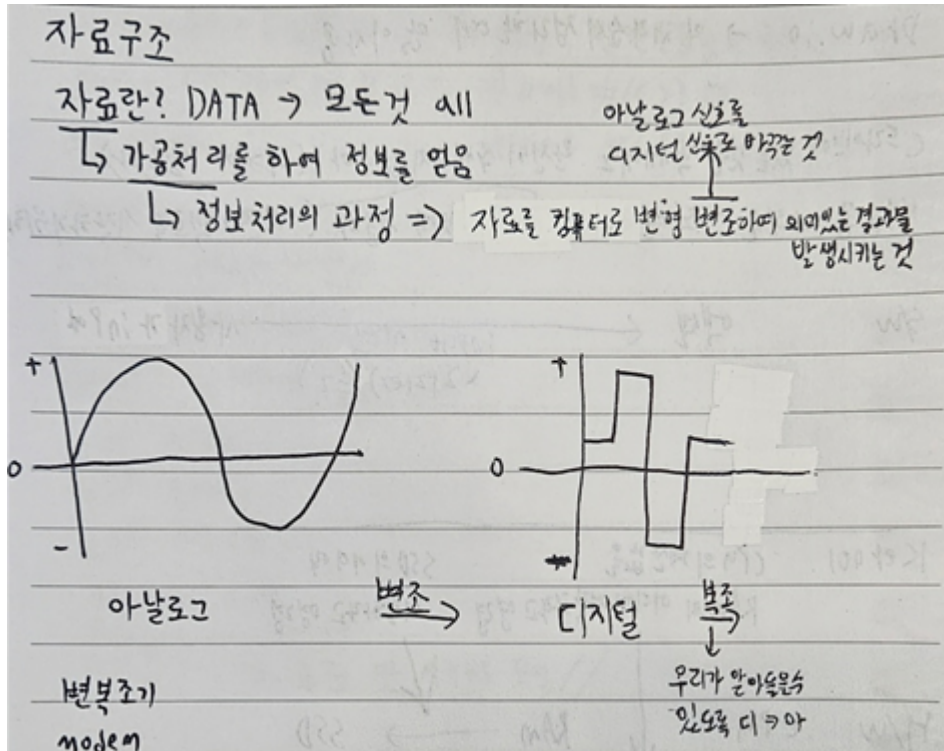 자료구조
자료란? DATA → 모든것 all
↳ 가공처리를 하여 정보를 얻음
아날로그 신호를
디지털 신호로 바꾸는 것
↳ 정보처리의 과정 ⇒ 자료를 컴퓨터로 변형 변조하여 의미있는 결과물
발생시키는 것
+
0
-
+
0
아날로그 변조→ 디지털 복조→
변복조기
modem
우리가 알아들을수
있도록 디→아